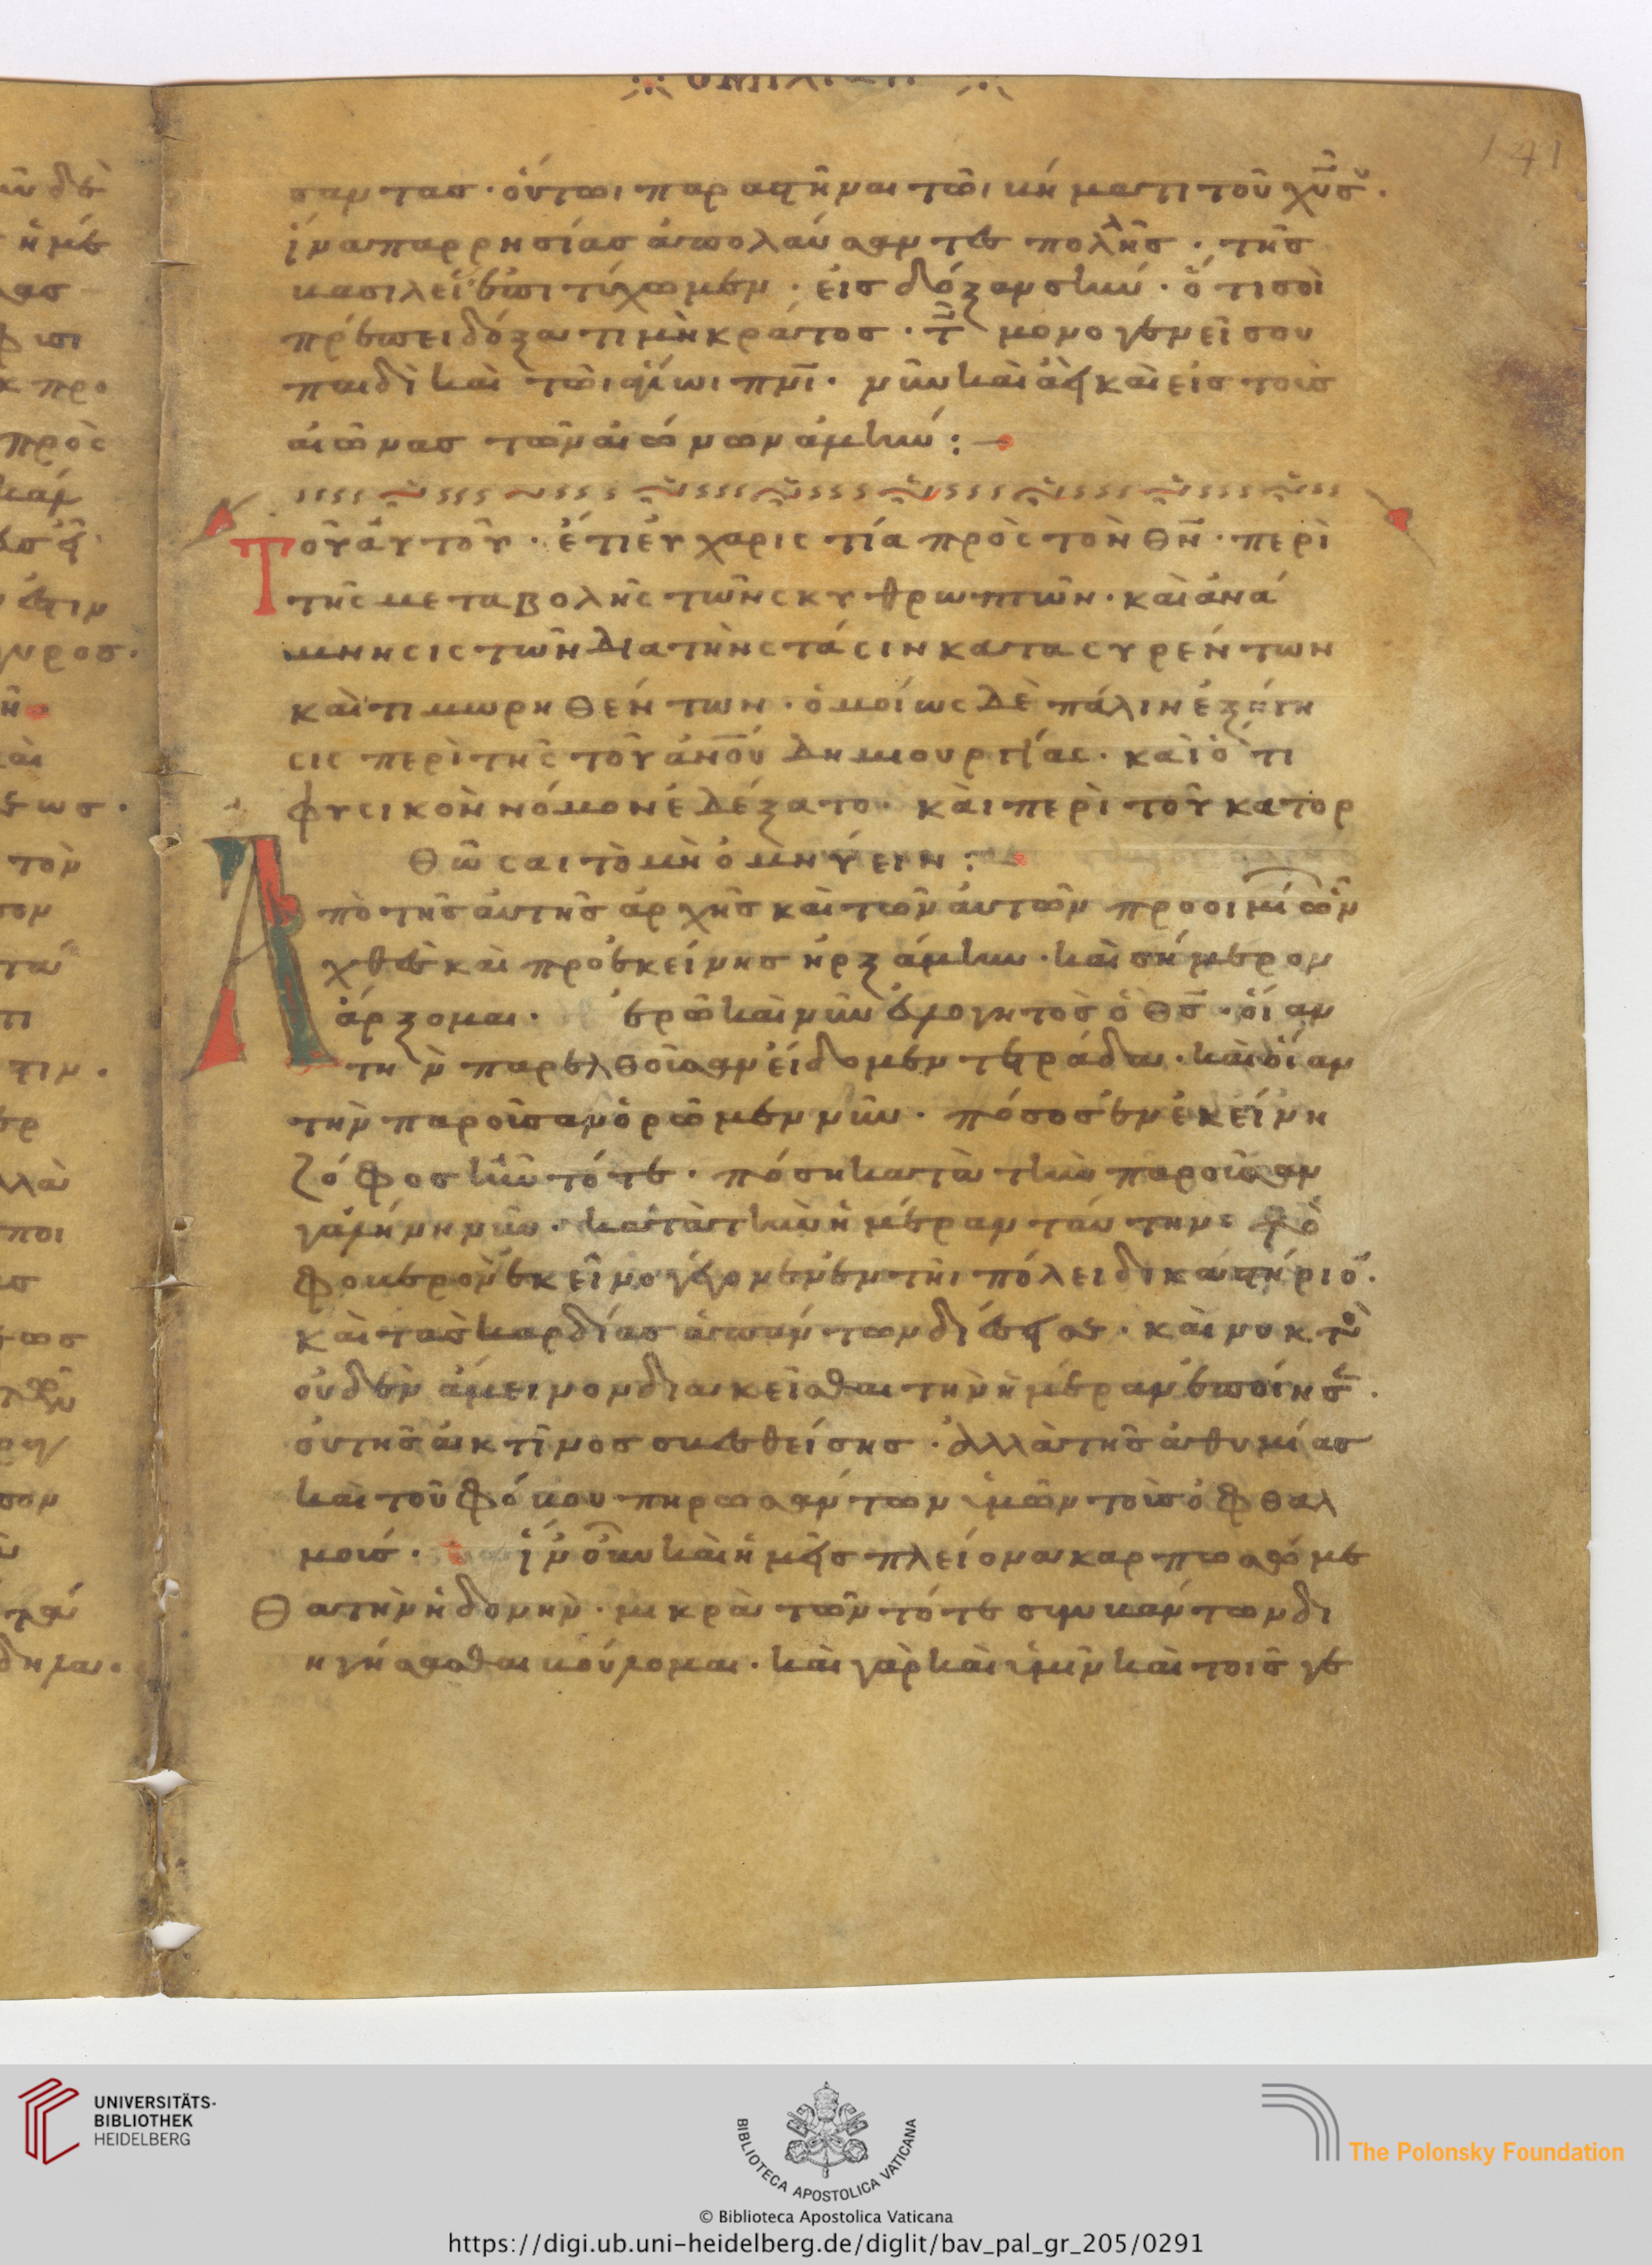 141
σαντασ· ὁύτωι παραστῆναι τῶι βήματι τοῦ χῦ σου·
ἵνα παρρησίασ ἀπολάυσαντεσ πολλῆσ· τῆσ
βασιλείασ ἐπιτύχωμεν· ἐισ δόξαν σὴν· ὅτι σοὶ
πρέπει δόξα τιμὴ κράτοσ· τῶ μονογενεῖ σου
παιδὶ καὶ τῶι ἁγίωι πνι· νῦν καὶ ἀεὶ καὶ εἰσ τοὺσ
αἰῶνασ τῶν αἰώνων ἀμήν:
Τοῦ ἀυτοῦ· ἔτι ἐυχαριστία πρὸς τὸν θν· περὶ
τῆς μεταβολῆς τῶν σκυθρωπῶν· καὶ ἀνά
μνησις τῶν διὰ τὴν στάσιν κατασυρέντων
καὶ τιμωρηθέντων· ὁμοίως δὲ πάλιν ἐξήγη
σις περὶ τῆς τοῦ ἀνου δημιουργίας· καὶ ὅτι
φυσικὸν νόμον ἐδέξατο· καὶ περὶ τοῦ κατορ
θῶσαι τὸ μὴ ὀμνύειν:
Ἀπὸ τῆσ ἀυτῆσ ἀρχῆσ καὶ τῶν ἀυτῶν προοιμίων ὧν
χθὲσ καὶ πρὸ ἐκείνησ ἠρξάμην· καὶ σήμερον
ἄρξομαι· ἐρῶ καὶ νῦν ἐυλογητὸσ ὁ θσ· ὅιαν
τὴν παρελθοῦσαν ἐίδομεν τετράδα· καὶ ὅιαν
τὴν παροῦσαν ὁρῶμεν νῦν· πόσοσ ἐν ἐκείνη
ζόφοσ ἦν τότε· πόση κατὰ τὴν παροῦσαν
γαλήνη νῦν· κατὰ τὴν ἡμέραν ταύτην τὸ
φοβερὸν ἐκεῖνο γέγονεν ἐν τῆι πόλει δικαστήριον·
καὶ τὰσ καρδίασ ἁπάντων διέσεισε· καὶ νυκτὸσ
ὀυδὲν ἄμεινον διακεῖσθαι τὴν ἡμέραν ἐποίησεν·
ὀυ τῆσ ἀκτῖνοσ σβεσθείσησ· ἀλλὰ τῆσ ἀθυμίασ
καὶ τοῦ φόβου πηρωσάντων ὑμῶν τοὺσ ὀφθαλ
μούσ· ἵν ὀῦν καὶ ἡμεῖσ πλείονα καρπωσόμε
θα τὴν ἡδονὴν· μικρὰ τῶν τότε συμβάντων δι
ηγήσασθαι βούλομαι· καὶ γὰρ καὶ ὑμῖν καὶ τοῖσ γε
UNIVERSITÄTS-
BIBLIOTHEK
HEIDELBERG
BIBLIOTECA APOSTOLICA VATICANA
The Polonsky Foundation
© Biblioteca Apostolica Vaticana
https://digi.ub.uni-heidelberg.de/diglit/bav_pal_gr_205/0291